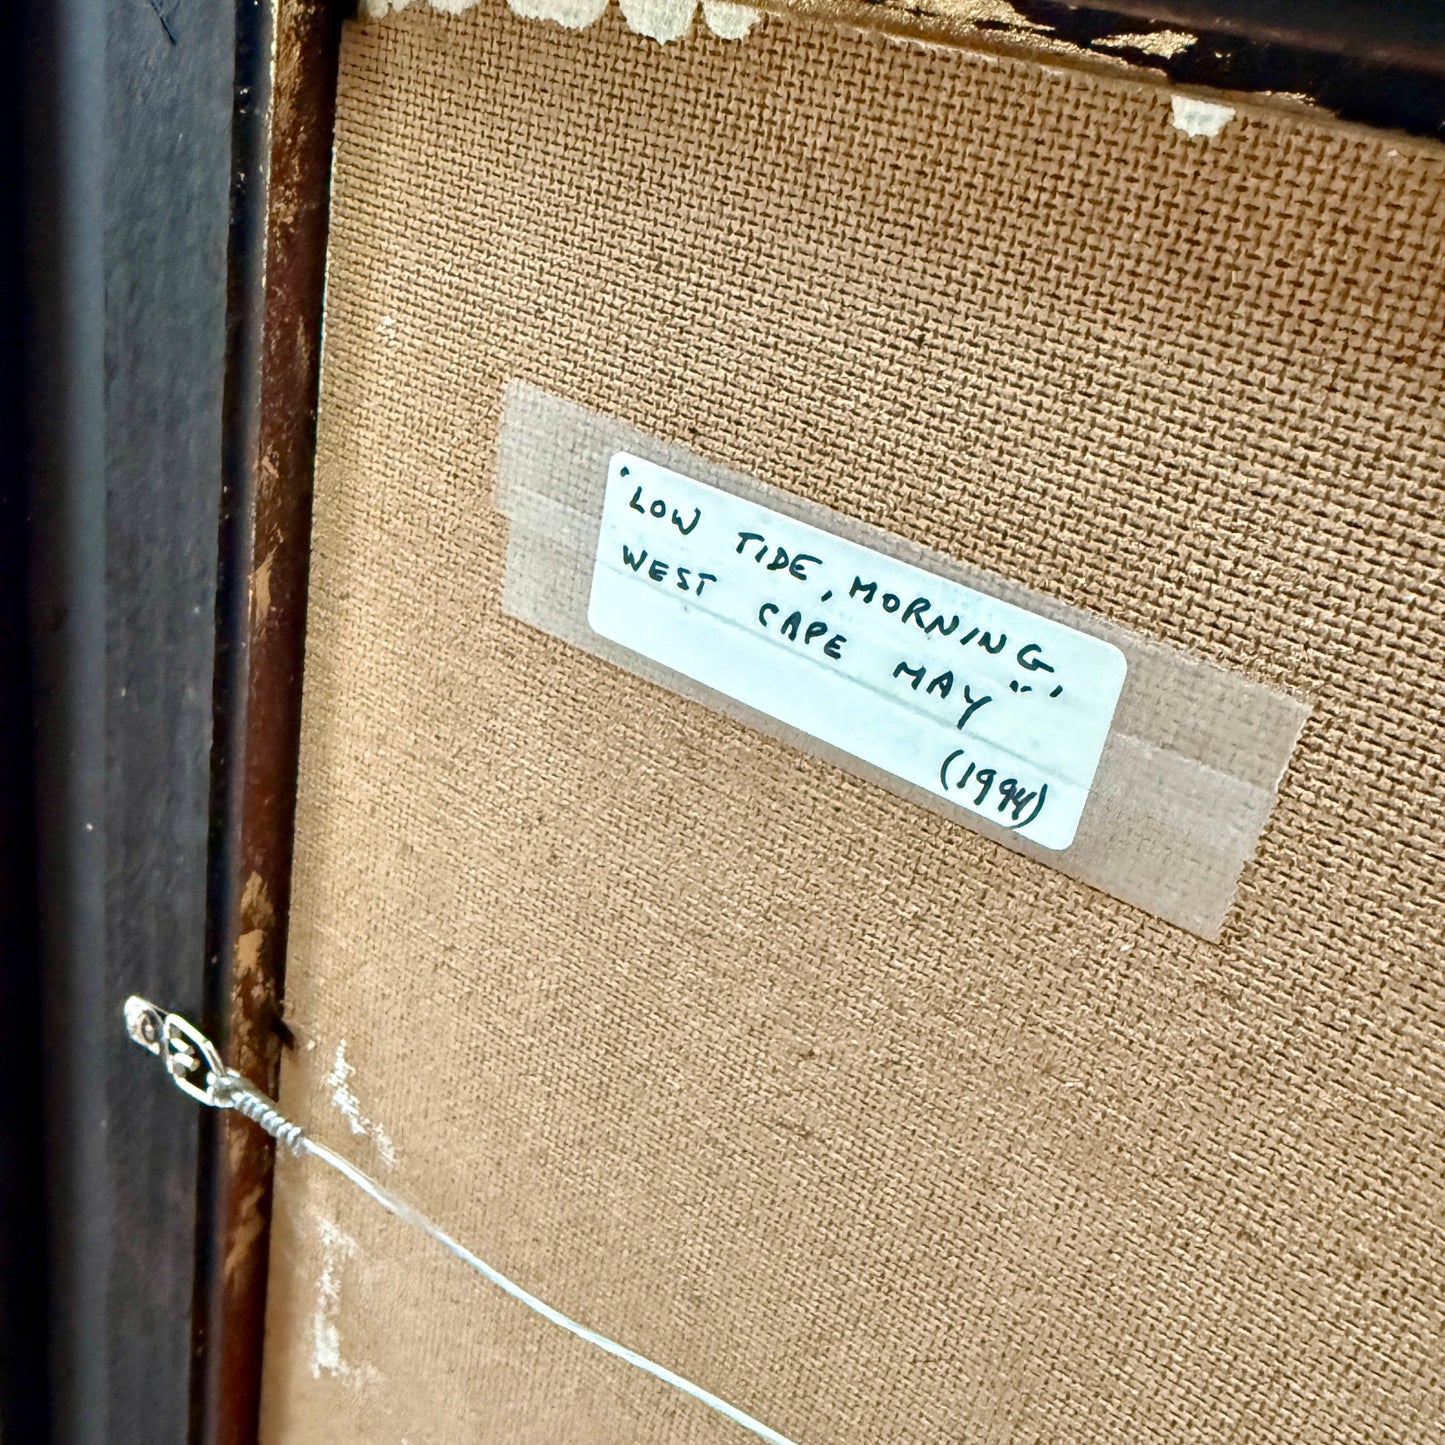 "LOW TIDE, MORNING,
WEST CAPE MAY"
(1994)